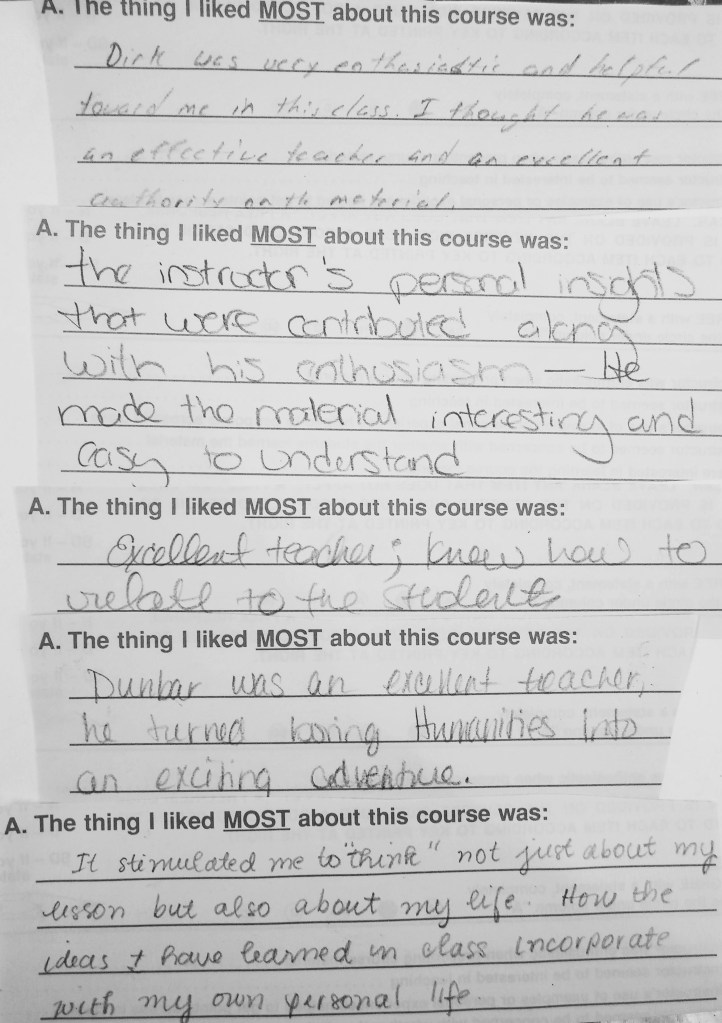 A. The thing I liked MOST about this course was:
Dirk was very enthusiastic and helpful
toward me in this class. I thought he was
an effective teacher and an excellent
authority on the material.
A. The thing I liked MOST about this course was:
the instructor's personal insights
that were contributed along
with his enthusiasm — He
made the material interesting and
easy to understand
A. The thing I liked MOST about this course was:
Excellent teacher; knew how to
relate to the students
A. The thing I liked MOST about this course was:
Dunbar was an excellent teacher,
he turned boring Humanities into
an exciting adventure.
A. The thing I liked MOST about this course was:
It stimulated me to "think" not just about my
lesson but also about my life. How the
ideas I have learned in class incorporate
with my own personal life